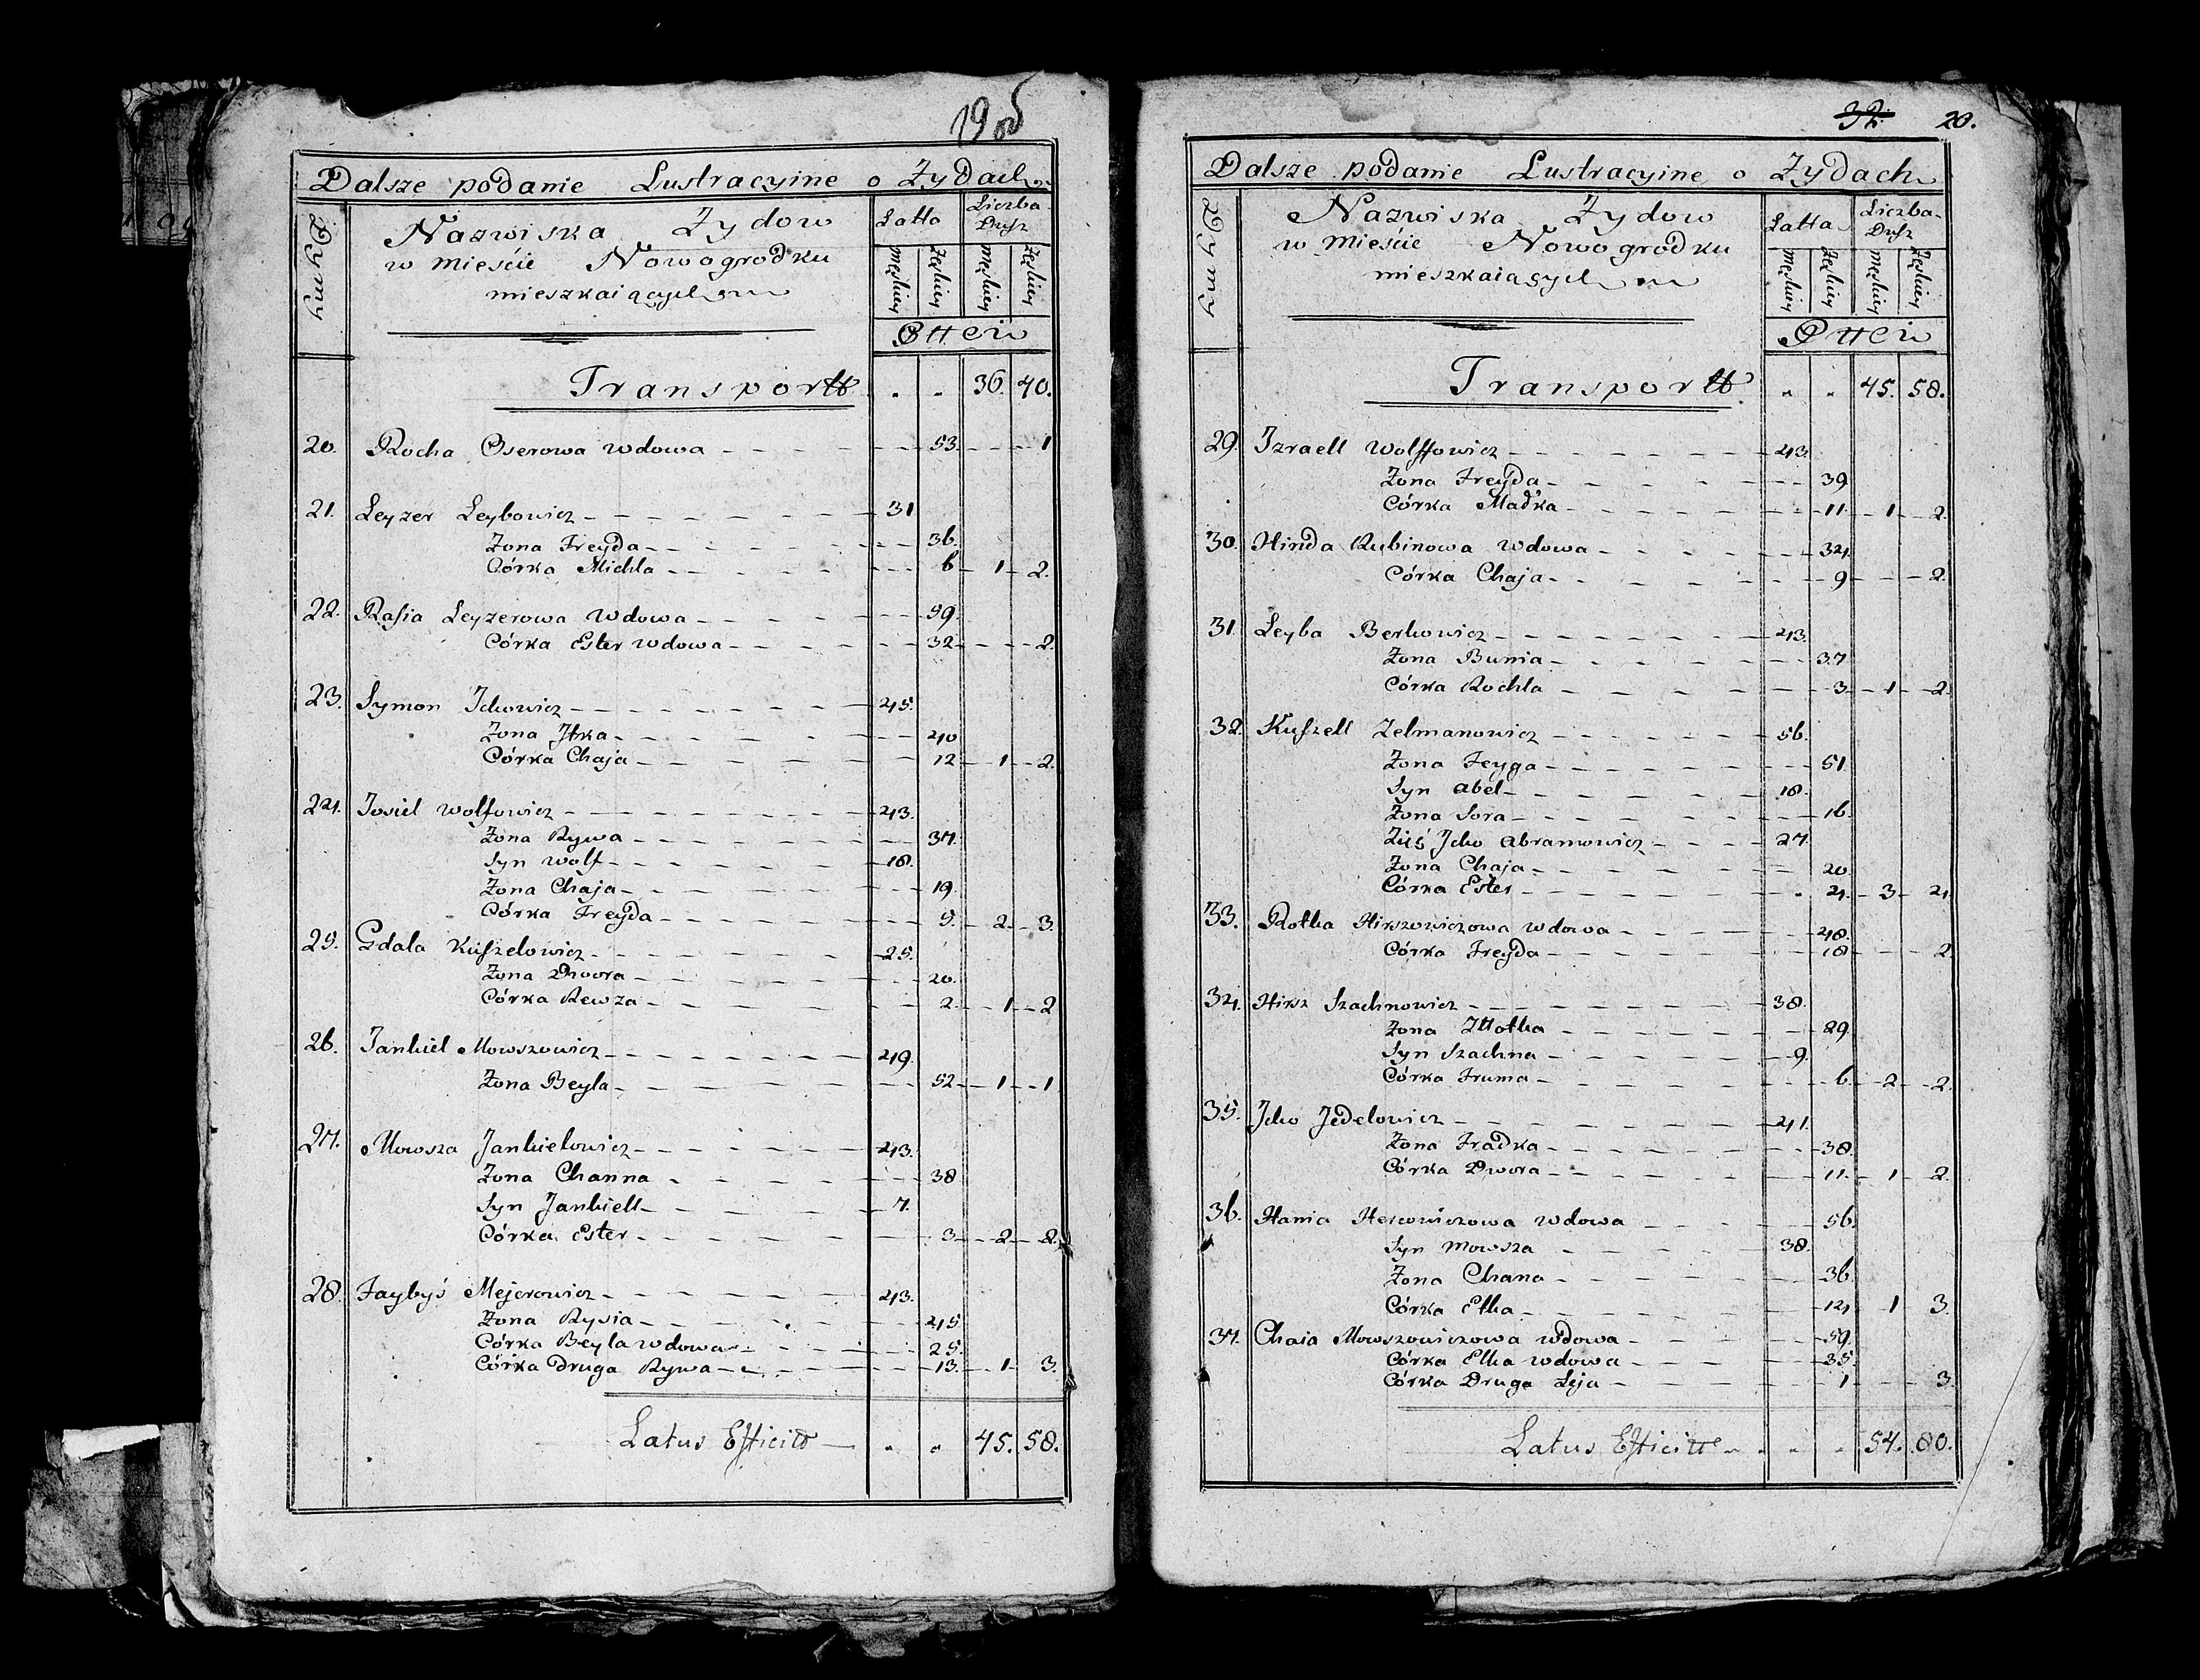 19 об
Dalsze podanie Lustracyine o Żydach
Dymy
Nazwiska Żydow
w Mieście Nowogrodku
mieszkaiących
Latta
Liczba Dusz
męskiey żeskiey męskiey żeskiey
Ottei
Transportt „ „ 36. 40.
20. Rocha Oserowa wdowa 53. 1
21. Leyzer Leybowicz 31
Żona Freyda 36.
Córka Michla 6 1 2.
22. Rasia Leyzerowa wdowa 59.
Córka Ester wdowa 32 2.
23. Symon Ickowicz 45.
Żona Itka 40
Córka Chaja 12 1 2.
24. Josiel Wolfowicz 43.
Żona Rywa 37.
Syn Wolf 18.
Żona Chaja 19.
Córka Freyda 5. 2 3.
25. Gdala Kuszelowicz 25.
Żona Dwora 20.
Córka Rewza 2 1 2
26. Jankiel Mowszowicz 49.
Żona Beyla 52 1 1
27. Mowsza Jankielowicz 43.
Żona Channa 38
Syn Jankiell 7.
Córka Ester 3 2 2.
28. Faybyś Mejerowicz 43.
Żona Rysia 45
Córka Beyla wdowa 25.
Córka Druga Rywa 13. 1 3.
Latus Efficitt „ „ 45. 58.
32. 20.
Dalsze podanie Lustracyine o Żydach
Dymy
Nazwiska Żydow
w Mieście Nowogrodku
mieszkaiących
Latta
Liczba Dusz
męskiey żeskiey męskiey żeskiey
Ottei
Transportt „ „ 45. 58.
29. Izraell Wolffowicz 43.
Żona Freyda 39
Córka Madka 11 1 2.
30. Hinda Rubinowa wdowa 34.
Córka Chaja 9 2.
31. Leyba Berkowicz 43.
Żona Bunia 37
Córka Rochla 3 1 2
32. Kuszell Zelmanowicz 56.
Żona Feyga 51
Syn Abel 18.
Żona Sora 16.
Zięć Icko Abramowicz 27.
Żona Chaja 20
Córka Ester 4. 3 4.
33. Rotka Hirszowiczowa wdowa 48.
Córka Freyda 18 2
34. Hirsz Szachnowicz 38.
Żona Złotka 29
Syn Szachna 9.
Córka Fruma 6. 2 2.
35. Icko Jedelowicz 41.
Żona Fradka 38
Córka Dwora 11. 1 2.
36. Hania Hercowiczowa wdowa 56.
Syn Mowsza 38.
Żona Chana 36
Córka Elka 14 1 3.
37. Chaia Mowszowiczowa wdowa 59.
Córka Elka wdowa 35
Córka Druga Leja 1 3.
Latus Efficitt „ „ 54. 80.